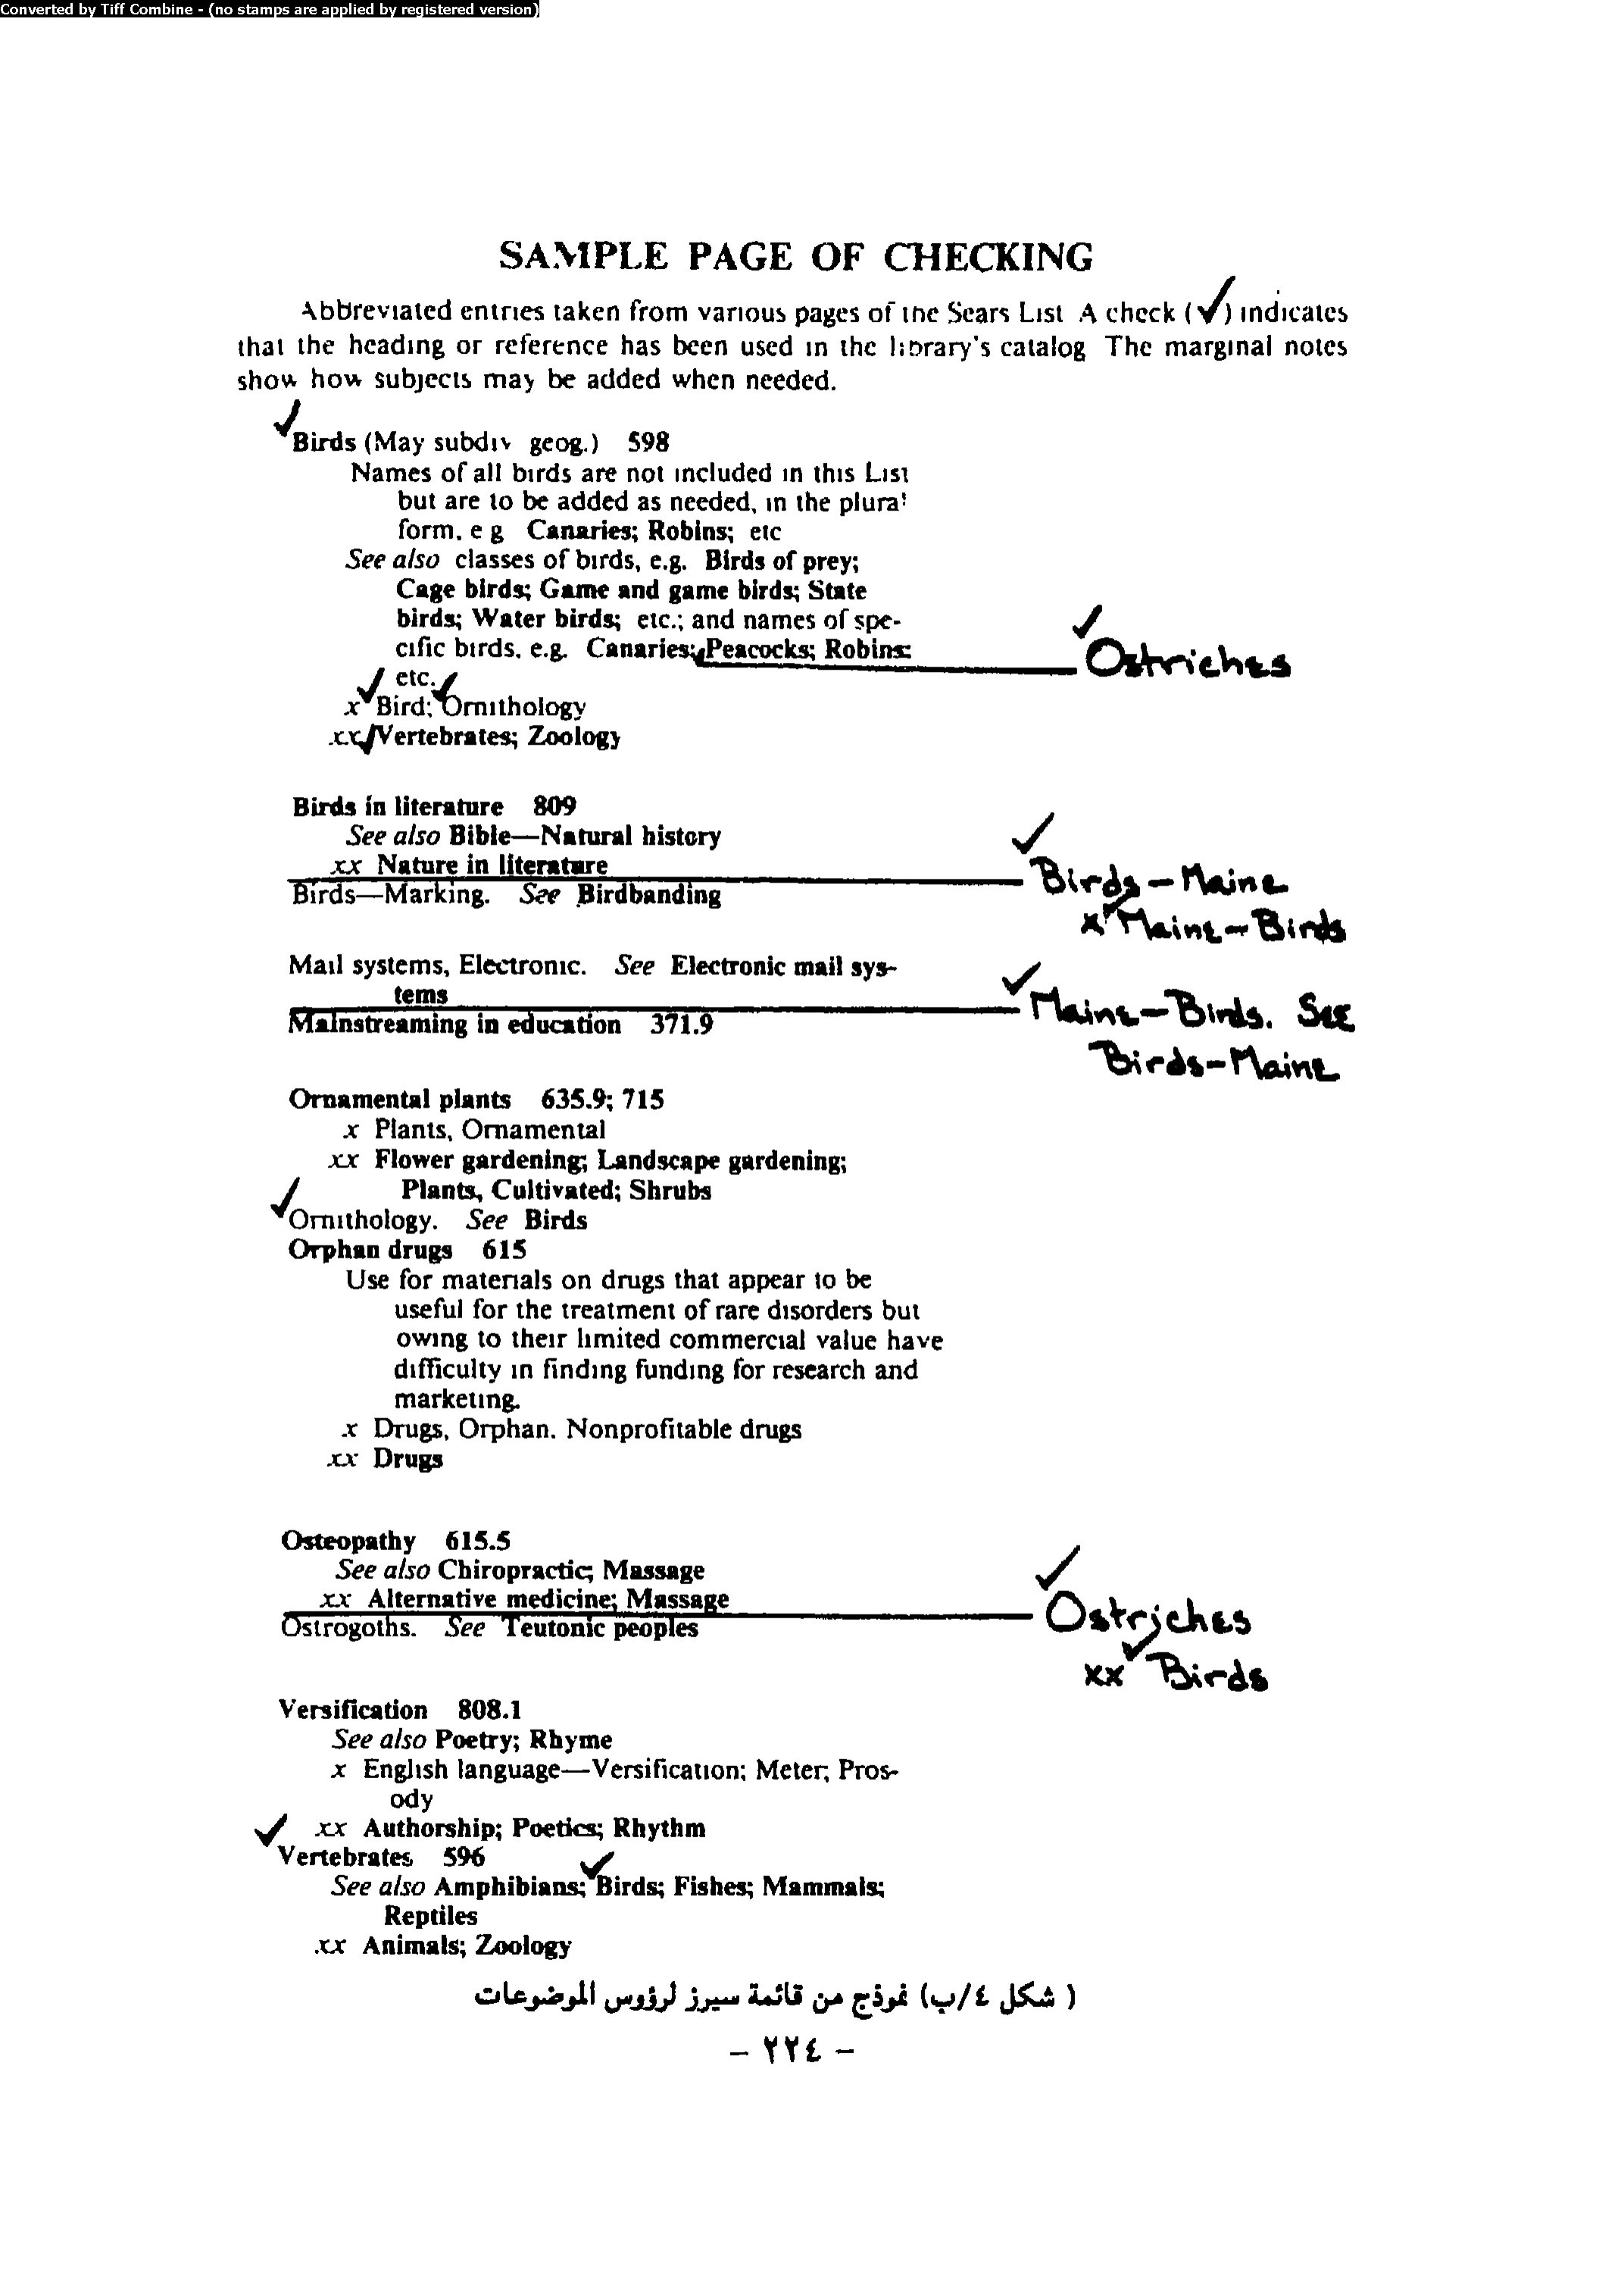 Converted by Tiff Combine - (no stamps are applied by registered version)
SAMPLE PAGE OF CHECKING
Abbreviated entries taken from various pages of the Sears List A check (✓) indicates
that the heading or reference has been used in the library's catalog The marginal notes
show how subjects may be added when needed.
✓
Birds (May subdiv geog.) 598
Names of all birds are not included in this List
but are to be added as needed, in the plural
form, e g Canaries; Robins; etc
See also classes of birds, e.g. Birds of prey;
Cage birds; Game and game birds; State
birds; Water birds; etc.; and names of spe-
cific birds, e.g. Canaries; Peacocks; Robins; ✓ Ostriches
etc.
x ✓ Bird; ✓ Ornithology
xx ✓ Vertebrates; Zoology
Birds in literature 809
See also Bible—Natural history
xx Nature in literature
✓ Birds-Maine
Birds—Marking. See Birdbanding
x ✓ Maine-Birds
Mail systems, Electronic. See Electronic mail sys-
tems
✓ Maine-Birds. See
Mainstreaming in education 371.9
Birds-Maine
Ornamental plants 635.9; 715
x Plants, Ornamental
xx Flower gardening; Landscape gardening;
Plants, Cultivated; Shrubs
✓ Ornithology. See Birds
Orphan drugs 615
Use for materials on drugs that appear to be
useful for the treatment of rare disorders but
owing to their limited commercial value have
difficulty in finding funding for research and
marketing.
x Drugs, Orphan. Nonprofitable drugs
xx Drugs
Osteopathy 615.5
See also Chiropractic; Massage
xx Alternative medicine; Massage
✓ Ostriches
Ostrogoths. See Teutonic peoples
xx ✓ Birds
Versification 808.1
See also Poetry; Rhyme
x English language—Versification; Meter; Pros-
ody
xx Authorship; Poetics; Rhythm
✓ Vertebrates 596
See also Amphibians; ✓ Birds; Fishes; Mammals;
Reptiles
xx Animals; Zoology
( شكل ٤/ب) نموذج من قائمة سيرز لرؤوس الموضوعات
– ٢٢٤ –